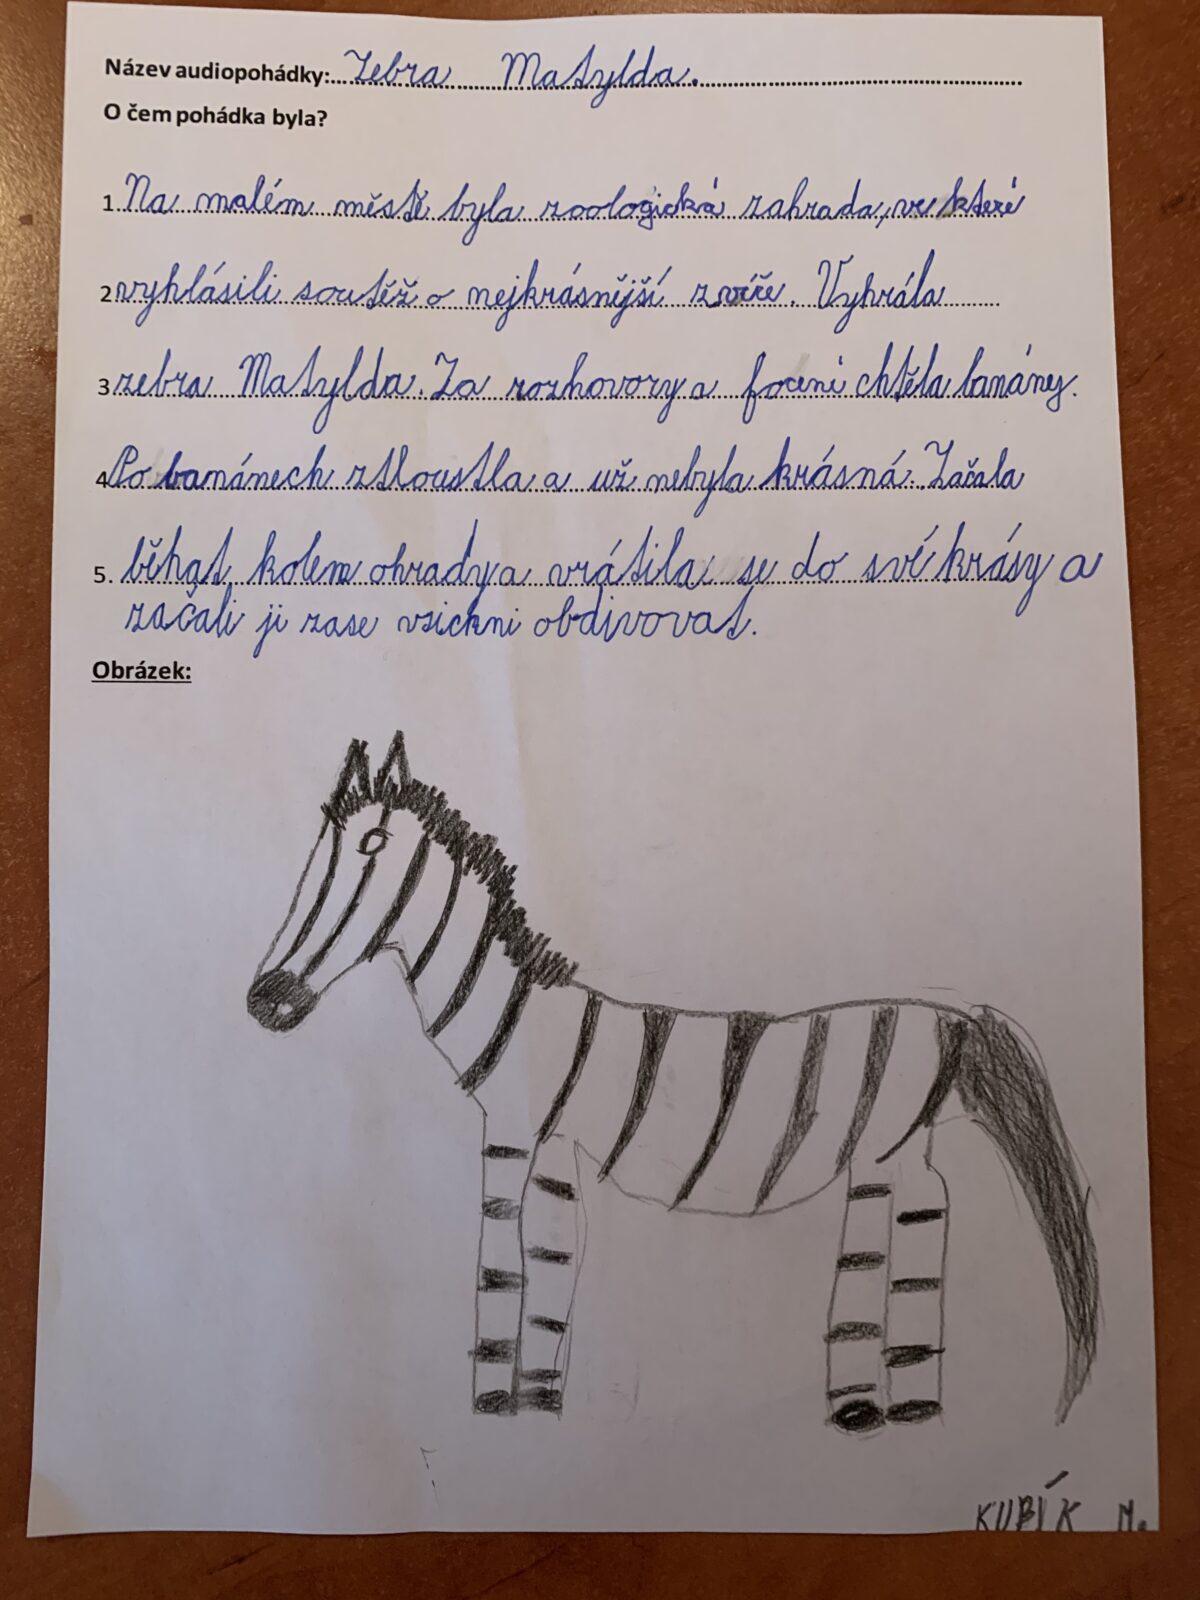 Název audiopohádky:...Zebra Matylda.
O čem pohádka byla?
1. Na malém městě byla zoologická zahrada, ve které
2. vyhlásili soutěž o nejkrásnější zvíře. Vyhrála
3. zebra Matylda. Za rozhovory a focení chtěla banány.
4. Po banánech ztloustla a už nebyla krásná. Začala
5. běhat kolem ohrady a vrátila se do své krásy a
začali ji zase vsickni obdivovat.
Obrázek:
KUBÍK M.